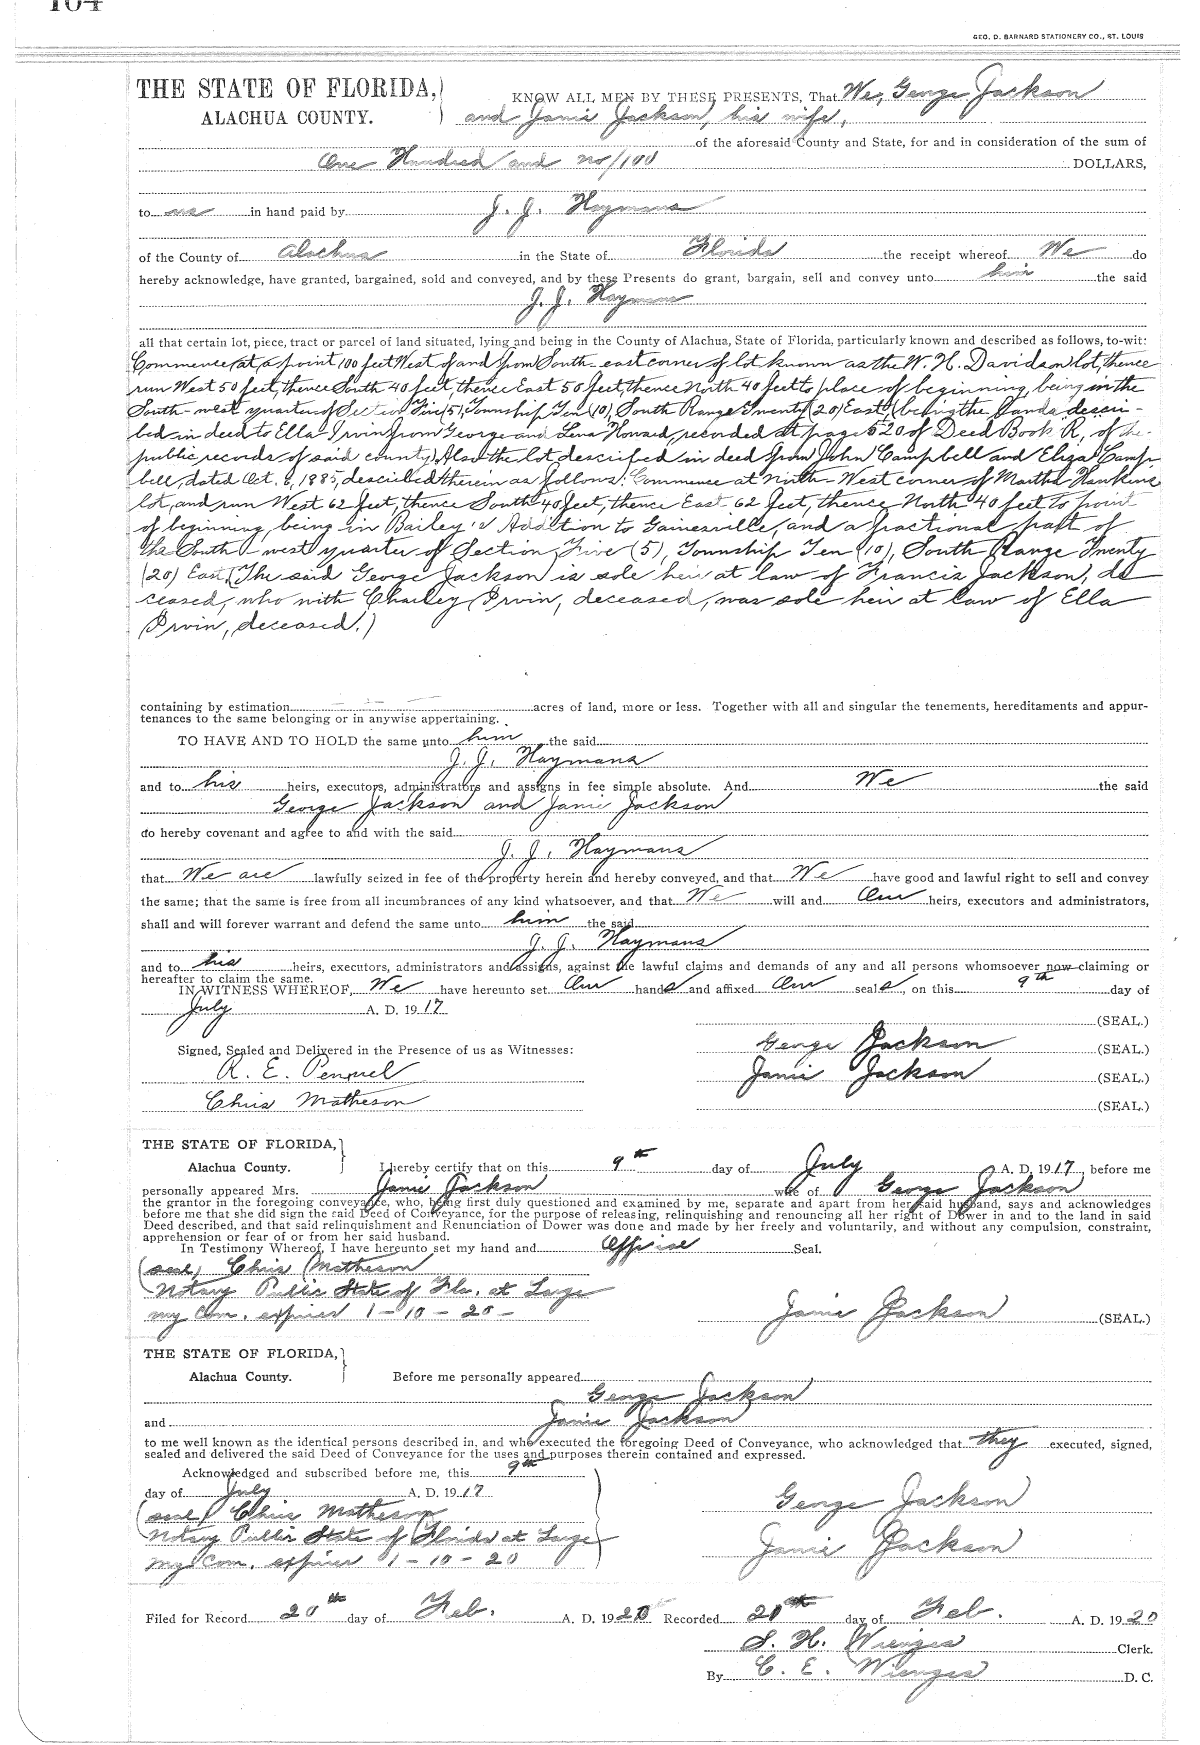 GEO. D. BARNARD STATIONERY CO., ST. LOUIS
THE STATE OF FLORIDA,
KNOW ALL MEN BY THESE PRESENTS, That We, George Jackson
ALACHUA COUNTY.
and Janie Jackson, his wife,
of the aforesaid County and State, for and in consideration of the sum of
One Hundred and no/100 DOLLARS,
to us in hand paid by J. J. Haymans
of the County of Alachua in the State of Florida the receipt whereof We do
hereby acknowledge, have granted, bargained, sold and conveyed, and by these Presents do grant, bargain, sell and convey unto him the said
J. J. Haymans
all that certain lot, piece, tract or parcel of land situated, lying and being in the County of Alachua, State of Florida, particularly known and described as follows, to-wit:
Commence at a point 100 feet West of and from South-east corner of lot known as the W. H. Davidson lot, thence
run West 50 feet, thence South 40 feet, thence East 50 feet, thence North 40 feet to place of beginning, being in the
South-west quarter of Section Five (5), Township Ten (10), South Range Twenty (20) East, (being the lands descri-
bed in deed to Ella Irvin from George and Lena Howard, recorded at page 520 of Deed Book R, of the
public records of said county). Also the lot described in deed from John Campbell and Eliza Camp-
bell, dated Oct. 1885, described therein as follows: Commence at North-West corner of Martha Hawkins
lot, and run West 62 feet, thence South 40 feet, thence East 62 feet, thence North 40 feet to point
of beginning, being in Bailey's Addition to Gainesville, and a fractional part of
the South-west quarter of Section Five (5), Township Ten (10), South Range Twenty
(20) East. (The said George Jackson is sole heir at law of Francis Jackson, de
ceased, who with Charley Irvin, deceased, was sole heir at law of Ella
Irvin, deceased.)
containing by estimation acres of land, more or less. Together with all and singular the tenements, hereditaments and appur-
tenances to the same belonging or in anywise appertaining.
TO HAVE AND TO HOLD the same unto him the said
J. J. Haymans
and to his heirs, executors, administrators and assigns in fee simple absolute. And We the said
George Jackson and Janie Jackson
do hereby covenant and agree to and with the said
J. J. Haymans
that We are lawfully seized in fee of the property herein and hereby conveyed, and that We have good and lawful right to sell and convey
the same; that the same is free from all incumbrances of any kind whatsoever, and that We will and Our heirs, executors and administrators,
shall and will forever warrant and defend the same unto him the said
J. J. Haymans
and to his heirs, executors, administrators and assigns, against the lawful claims and demands of any and all persons whomsoever now claiming or
hereafter to claim the same.
IN WITNESS WHEREOF, We have hereunto set Our hands and affixed Our seals, on this 9th day of
July A. D. 1917
(SEAL.)
Signed, Sealed and Delivered in the Presence of us as Witnesses: George Jackson (SEAL.)
R. E. Janie Jackson (SEAL.)
Chris Matheson (SEAL.)
THE STATE OF FLORIDA,
Alachua County. I hereby certify that on this 9th day of July A. D. 1917, before me
personally appeared Mrs. Janie Jackson wife of George Jackson
the grantor in the foregoing conveyance, who, being first duly questioned and examined by me, separate and apart from her said husband, says and acknowledges
before me that she did sign the said Deed of Conveyance, for the purpose of releasing, relinquishing and renouncing all her right of Dower in and to the land in said
Deed described, and that said relinquishment and Renunciation of Dower was done and made by her freely and voluntarily, and without any compulsion, constraint,
apprehension or fear of or from her said husband.
In Testimony Whereof, I have hereunto set my hand and Official Seal.
(seal) Chris Matheson
Notary Public State of Fla. at Large
my Com. expires 1-10-20- Janie Jackson (SEAL.)
THE STATE OF FLORIDA,
Alachua County. Before me personally appeared
George Jackson
and Janie Jackson
to me well known as the identical persons described in, and who executed the foregoing Deed of Conveyance, who acknowledged that they executed, signed,
sealed and delivered the said Deed of Conveyance for the uses and purposes therein contained and expressed.
Acknowledged and subscribed before me, this 9th
day of July A. D. 1917
(seal) Chris Matheson George Jackson
Notary Public State of Florida at Large
My Com. expires 1-10-20 Janie Jackson
Filed for Record 20th day of Feb. A. D. 1920 Recorded 20th day of Feb. A. D. 1920
S. H. Wienges Clerk.
By C. E. Wienges D. C.